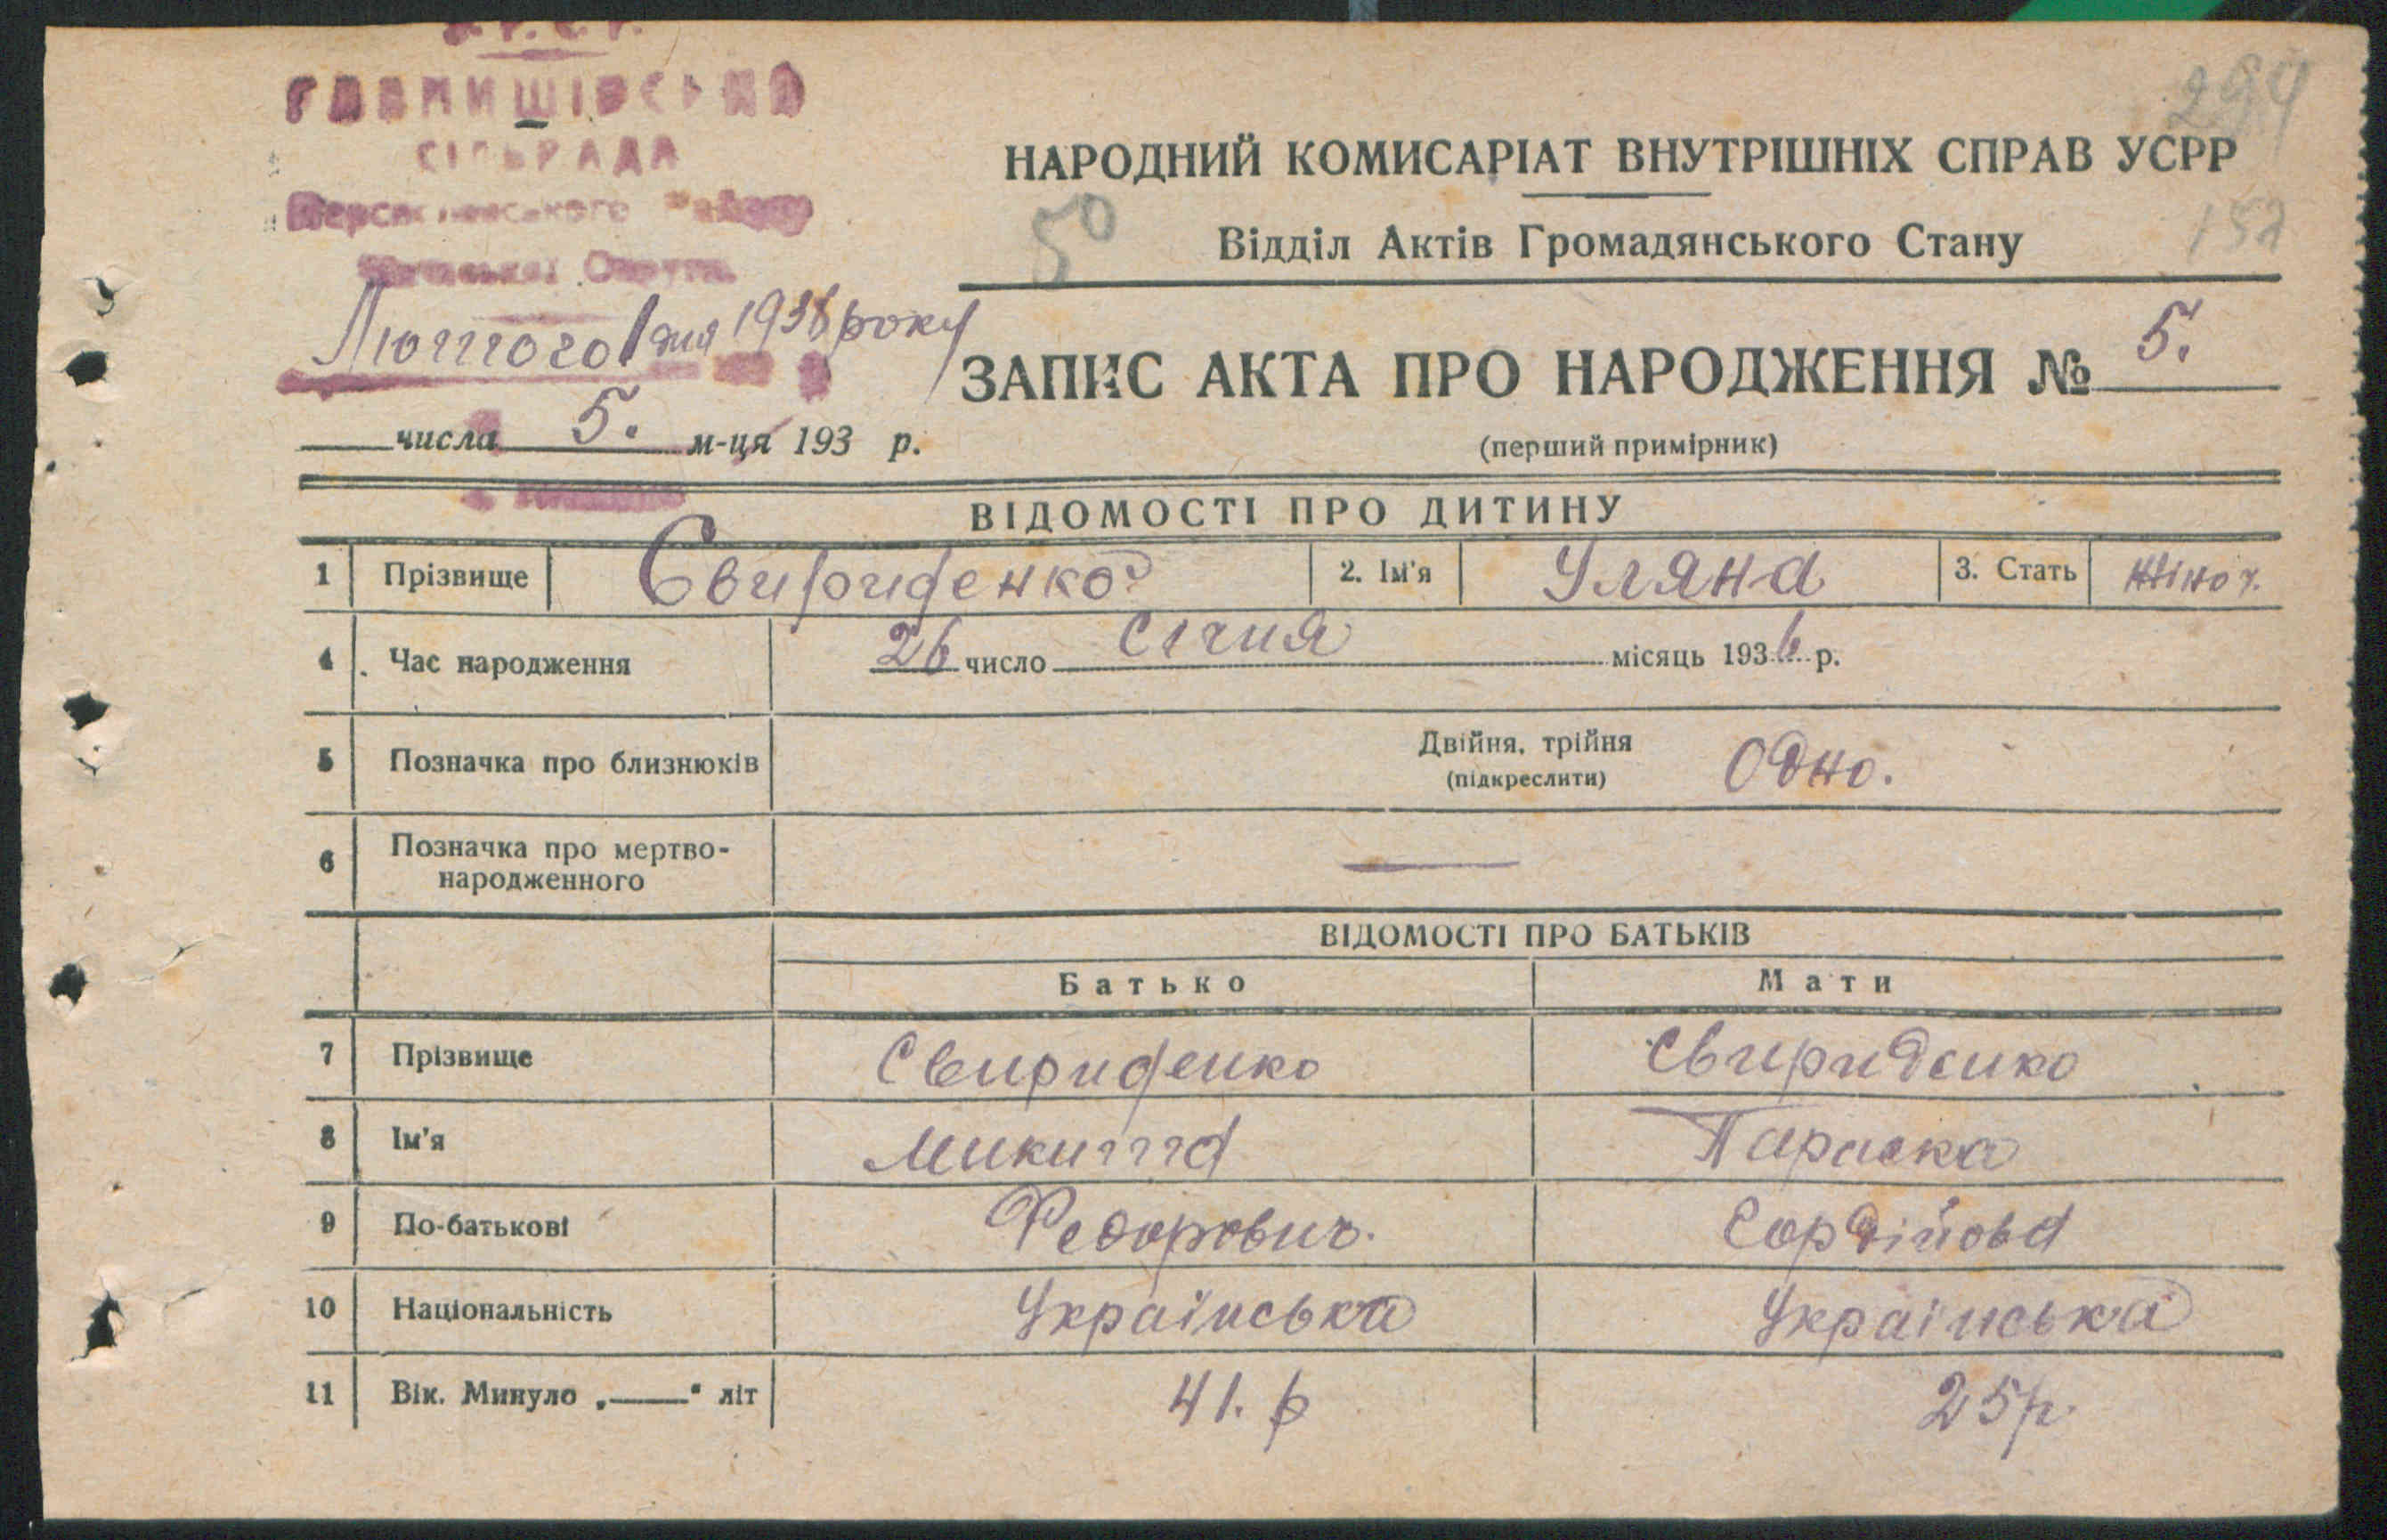 СІЛЬРАДА
Лютого 1 дня 1936 року
числа 5. м-ця 193 р.
294
НАРОДНИЙ КОМИСАРІАТ ВНУТРІШНІХ СПРАВ УСРР
50
Відділ Актів Громадянського Стану
ЗАПИС АКТА ПРО НАРОДЖЕННЯ № 5.
(перший примірник)
ВІДОМОСТІ ПРО ДИТИНУ
1 Прізвище Свириденко 2. Ім'я Уляна 3. Стать жіноч.
4 Час народження 26 число Січня місяць 1936 р.
5 Позначка про близнюків Двійня, трійня (підкреслити) Одно.
6 Позначка про мертво-
народженного —
ВІДОМОСТІ ПРО БАТЬКІВ
Батько Мати
7 Прізвище Свириденко Свириденко
8 Ім'я Микита Параска
9 По-батькові Федорович. Гордійовa
10 Національність Українська Українська
11 Вік. Минуло „——" літ 41. р 25 р.